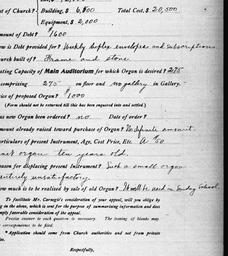 of Church? Building, $ 6,800 Total Cost, $ 20,500
Equipment, $ 2,000
Amount of Debt? $1600
is Debt Provided for? Weekly duplex envelopes and subscriptions
Church built of? Frame and stone
Seating Capacity of Main Auditorium for which Organ is desired? 275
comprising 275 on floor and no gallery in Gallery.
Price of proposed Organ? $1000
(Form should not be returned till this has been enquired into and settled.)
new Organ been ordered? no Date of order?
Amount already raised toward purchase of Organ? No definite amount.
Particulars of present Instrument, Age, Cost Price, Etc. A 50
organ ten years old.
Reason for displacing present Instrument? Such a small organ
entirely unsatisfactory.
How much is to be realized by sale of old Organ? It will be used in Sunday School.
To facilitate Mr. Carnegie's consideration of your appeal, will you oblige by
in the above, which is sent for purpose of summarizing information and does
imply favorable consideration of the appeal.
Precise answer to each question is necessary. The leaving of blanks may
correspondence to be filed.
Application should come from Church authorities and not from private
Respectfully,